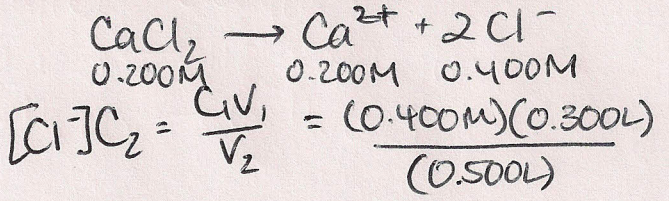 CaCl₂ → Ca²⁺ + 2Cl⁻
0.200M 0.200M 0.400M
[Cl⁻]C₂ = C₁V₁/V₂ = (0.400M)(0.300L)/(0.500L)